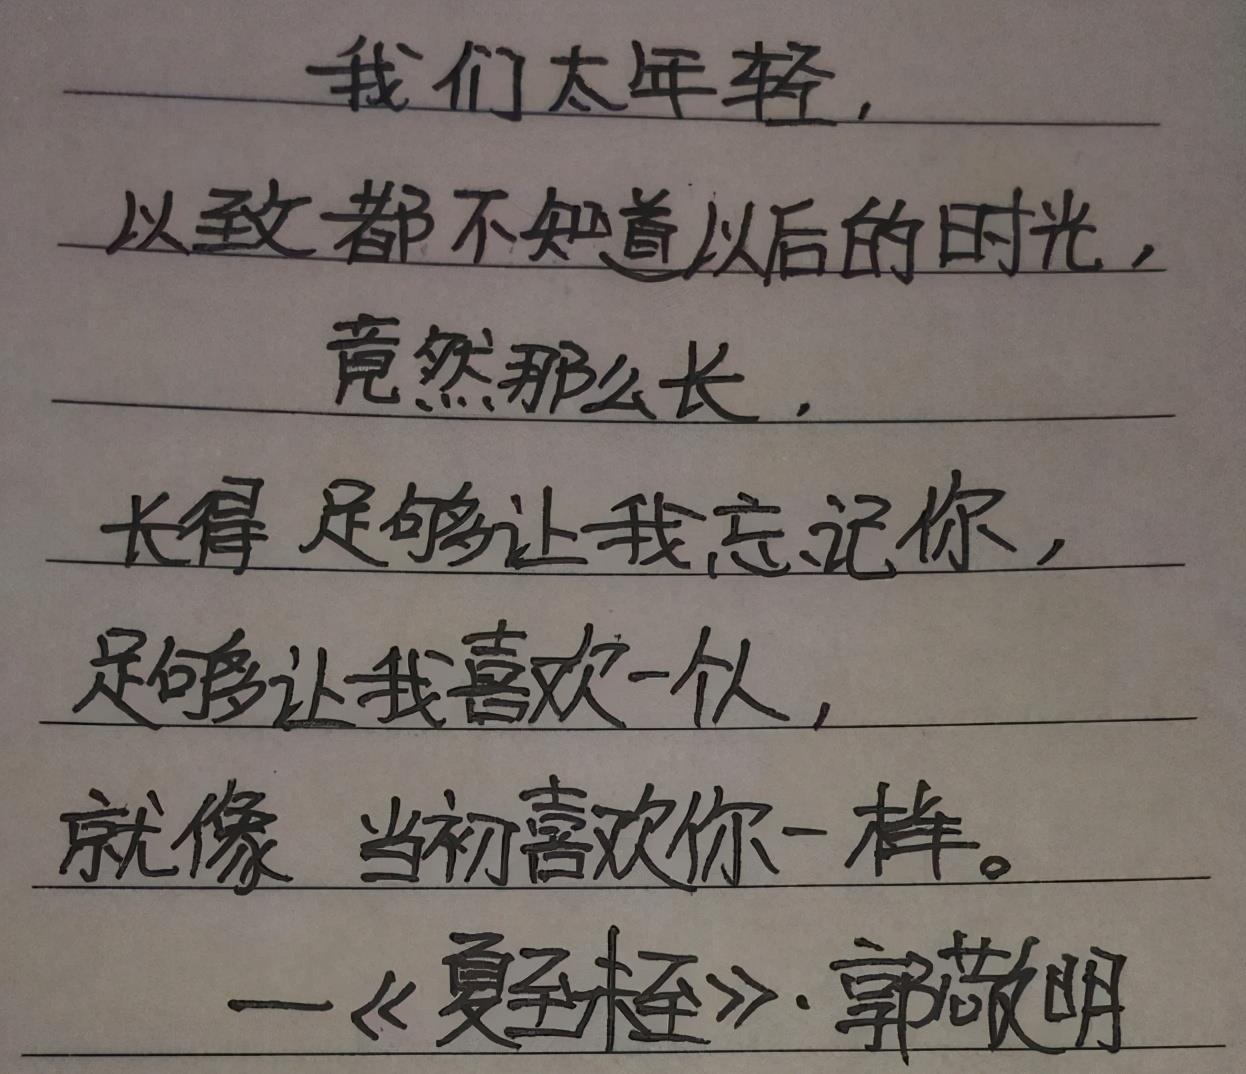 我们太年轻，
以致都不知道以后的时光，
竟然那么长，
长得足够让我忘记你，
足够让我喜欢一个人，
就像当初喜欢你一样。
—《夏至未至》·郭敬明